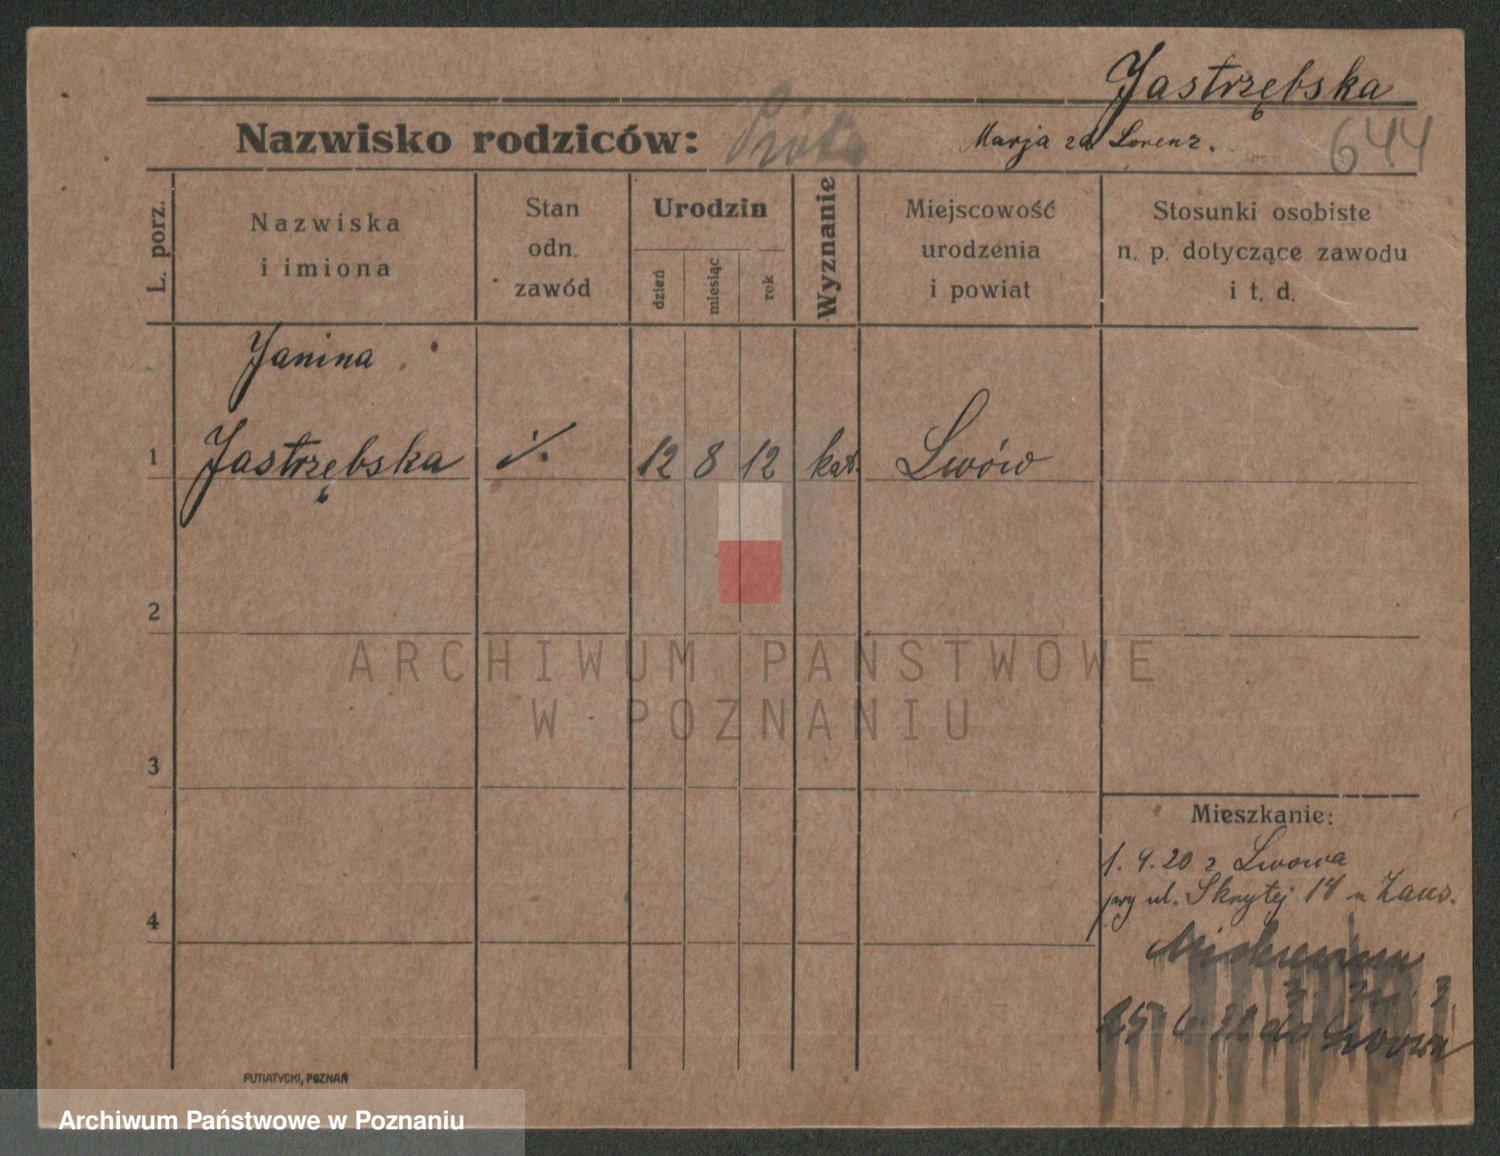 Jastrzębska
Nazwisko rodziców: Marja za Lorenz. 644
L. porz.
Nazwiska
i imiona
Stan
odn.
zawód
Urodzin
dzień
miesiąc
rok
Wyznanie
Miejscowość
urodzenia
i powiat
Stosunki osobiste
n. p. dotyczące zawodu
i t. d.
Janina
1 Jastrzębska ·/. 12 8 12 kat. Lwów
2
3
4
ARCHIWUM PAŃSTWOWE
W POZNANIU
Mieszkanie:
1. 4. 20 z Lwowa
przy ul. Skrytej 14
25 6 32 do Lwowa
PUTIATYCKI, POZNAŃ
Archiwum Państwowe w Poznaniu